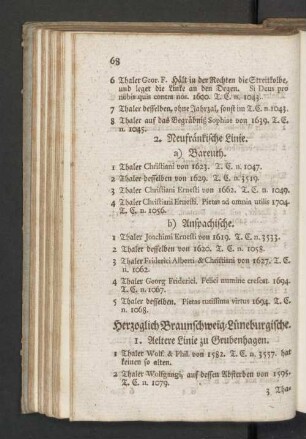 68
6 Thaler Geor. F. Hält in der Rechten die Streitkolbe,
und leget die Linke an den Degen. Si Deus pro
nobis quis contra nos. 1600. T. C. n. 1043.
7 Thaler desselben, ohne Jahrzal, sonst im T. C. n. 1043.
8 Thaler auf das Begräbniß Sophiæ von 1639. T. C.
n. 1045.
2. Neufränkische Linie.
a) Bareuth.
1 Thaler Christiani von 1623. T. C. n. 1047.
2 Thaler desselben von 1629. T. C. n. 3519.
3 Thaler Christiani Ernesti von 1662. T. C. n. 1049.
4 Thaler Christiani Ernesti. Pietas ad omnia utilis 1704.
T. C. n. 1056.
b) Anspachische.
1 Thaler Joachimi Ernesti von 1619. T. C. n. 3533.
2 Thaler desselben von 1620. T. C. n. 1058.
3 Thaler Friderici Alberti & Christiani von 1627. T. C.
n. 1062.
4 Thaler Georg Friderici. Felici numine crescat. 1694.
T. C. n. 1067.
5 Thaler desselben. Pietas tutissima virtus 1694. T. C.
n. 1068.
Herzoglich Braunschweig Lüneburgische.
1. Aeltere Linie zu Grubenhagen.
1 Thaler Wolf. & Phil. von 1582. T. C. n. 3557. hat
keinen so alten.
2 Thaler Wolfgangi, auf dessen Absterben von 1595.
T. C. n. 1079.
3 Tha-